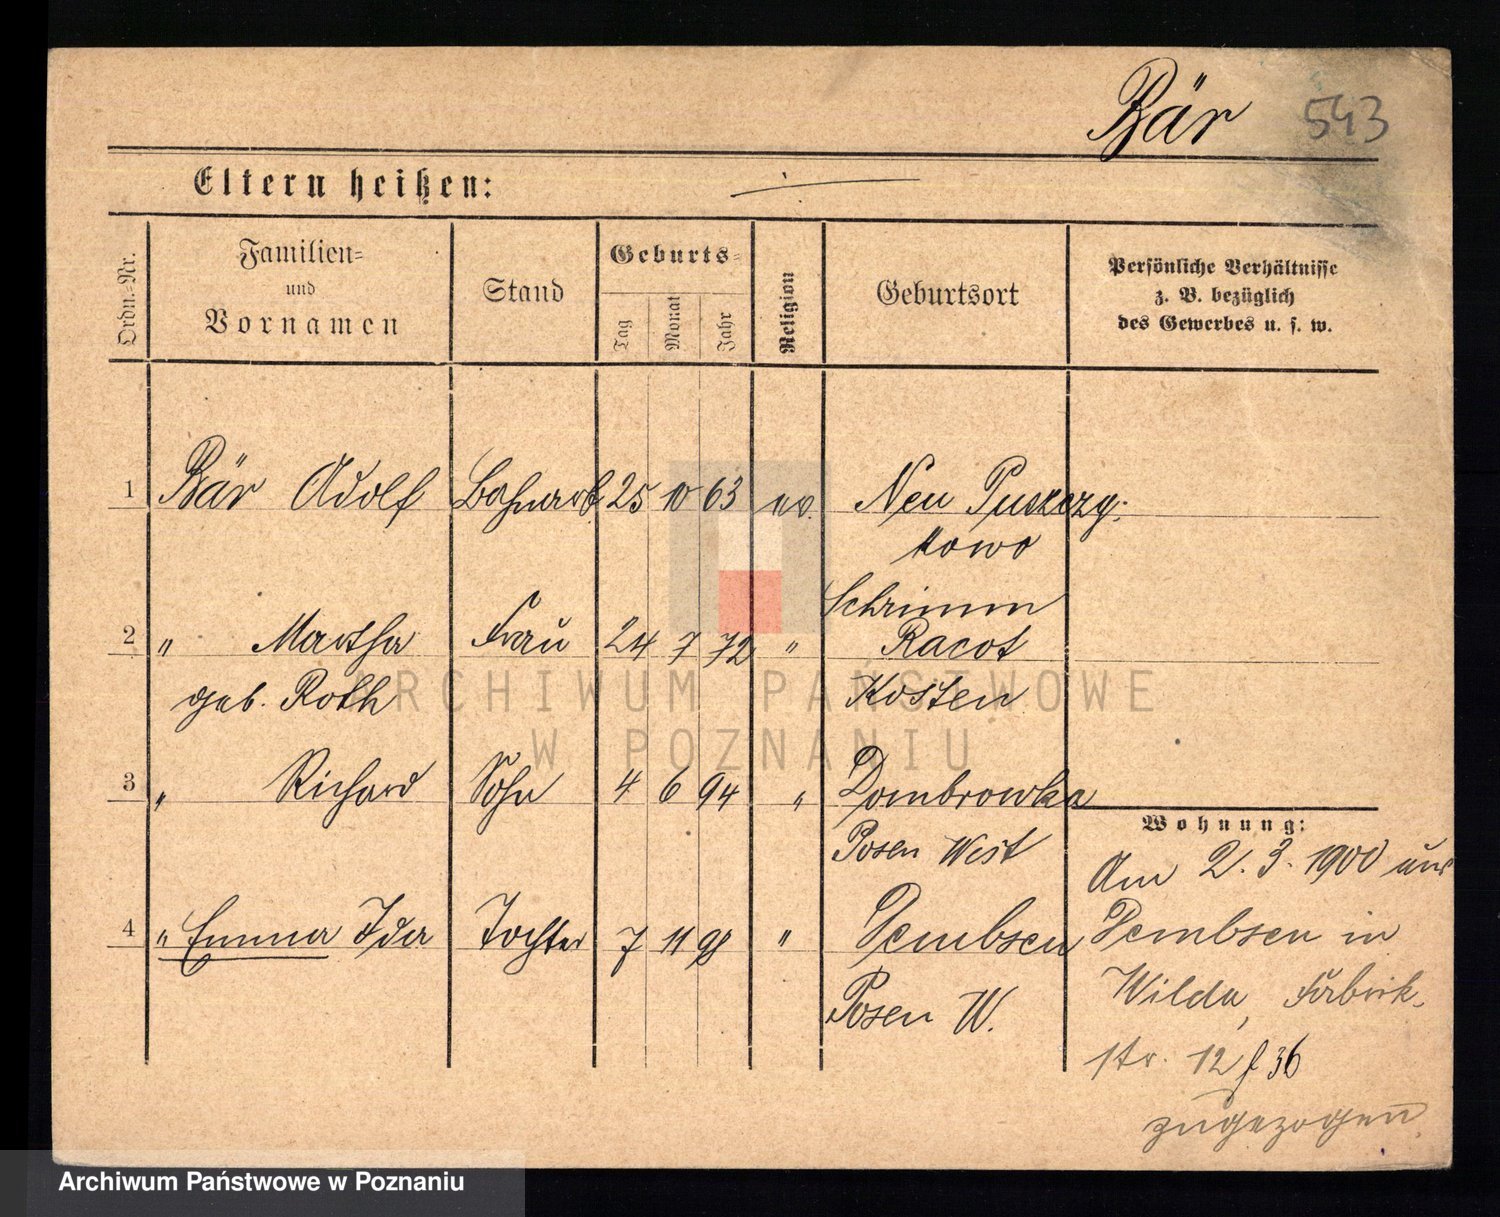 Bär 543
Eltern heißen:
Ordn.-Nr.
Familien-
und
Vornamen
Stand
Geburts-
Tag
Monat
Jahr
Religion
Geburtsort
Persönliche Verhältnisse
z. B. bezüglich
des Gewerbes u. s. w.
1 Bär Adolf Bahnarb. 25 10 63 ev. Neu Puszczy-
kowo
Schrimm
2 " Martha Frau 24 7 72 " Racot
geb. Roth Kosten
3 " Richard Sohn 4 6 94 " Dombrowka
Posen West
4 " Emma Ida Tochter 7 11 98 " Dembsen
Posen W.
Wohnung:
Am 2. 3. 1900 aus
Dembsen in
Wilda, Fabrik-
str. 12 f 36
zugezogen
ARCHIWUM PAŃSTWOWE
W POZNANIU
Archiwum Państwowe w Poznaniu